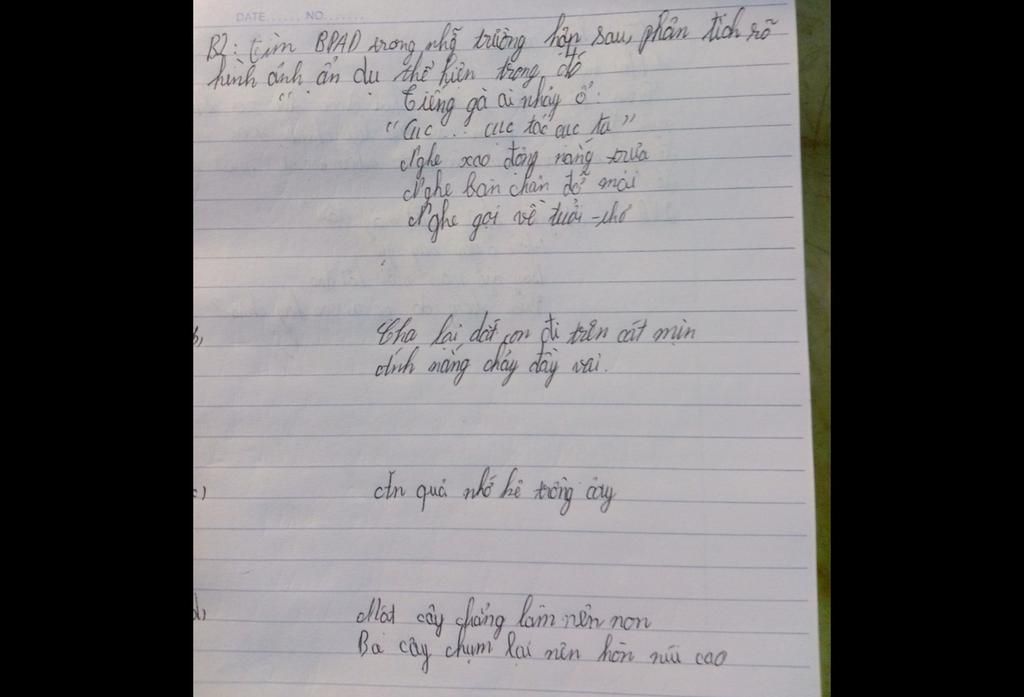 DATE...... NO.......
B2: tìm BPAD trong nhỡ trường hợp sau, phân tích rõ
hình ảnh ẩn dụ thể hiện trong đó
Tiếng gà ai nhảy ổ:
"Cục... cục tác cục ta"
Nghe xao động nắng trưa
Nghe bàn chân đỡ mỏi
Nghe gọi về tuổi thơ
b,
Cha lại dắt con đi trên cát mịn
Ánh nắng chảy đầy vai.
c)
Ăn quả nhớ kẻ trồng cây
d,
Một cây chẳng làm nên non
Ba cây chụm lại nên hòn núi cao